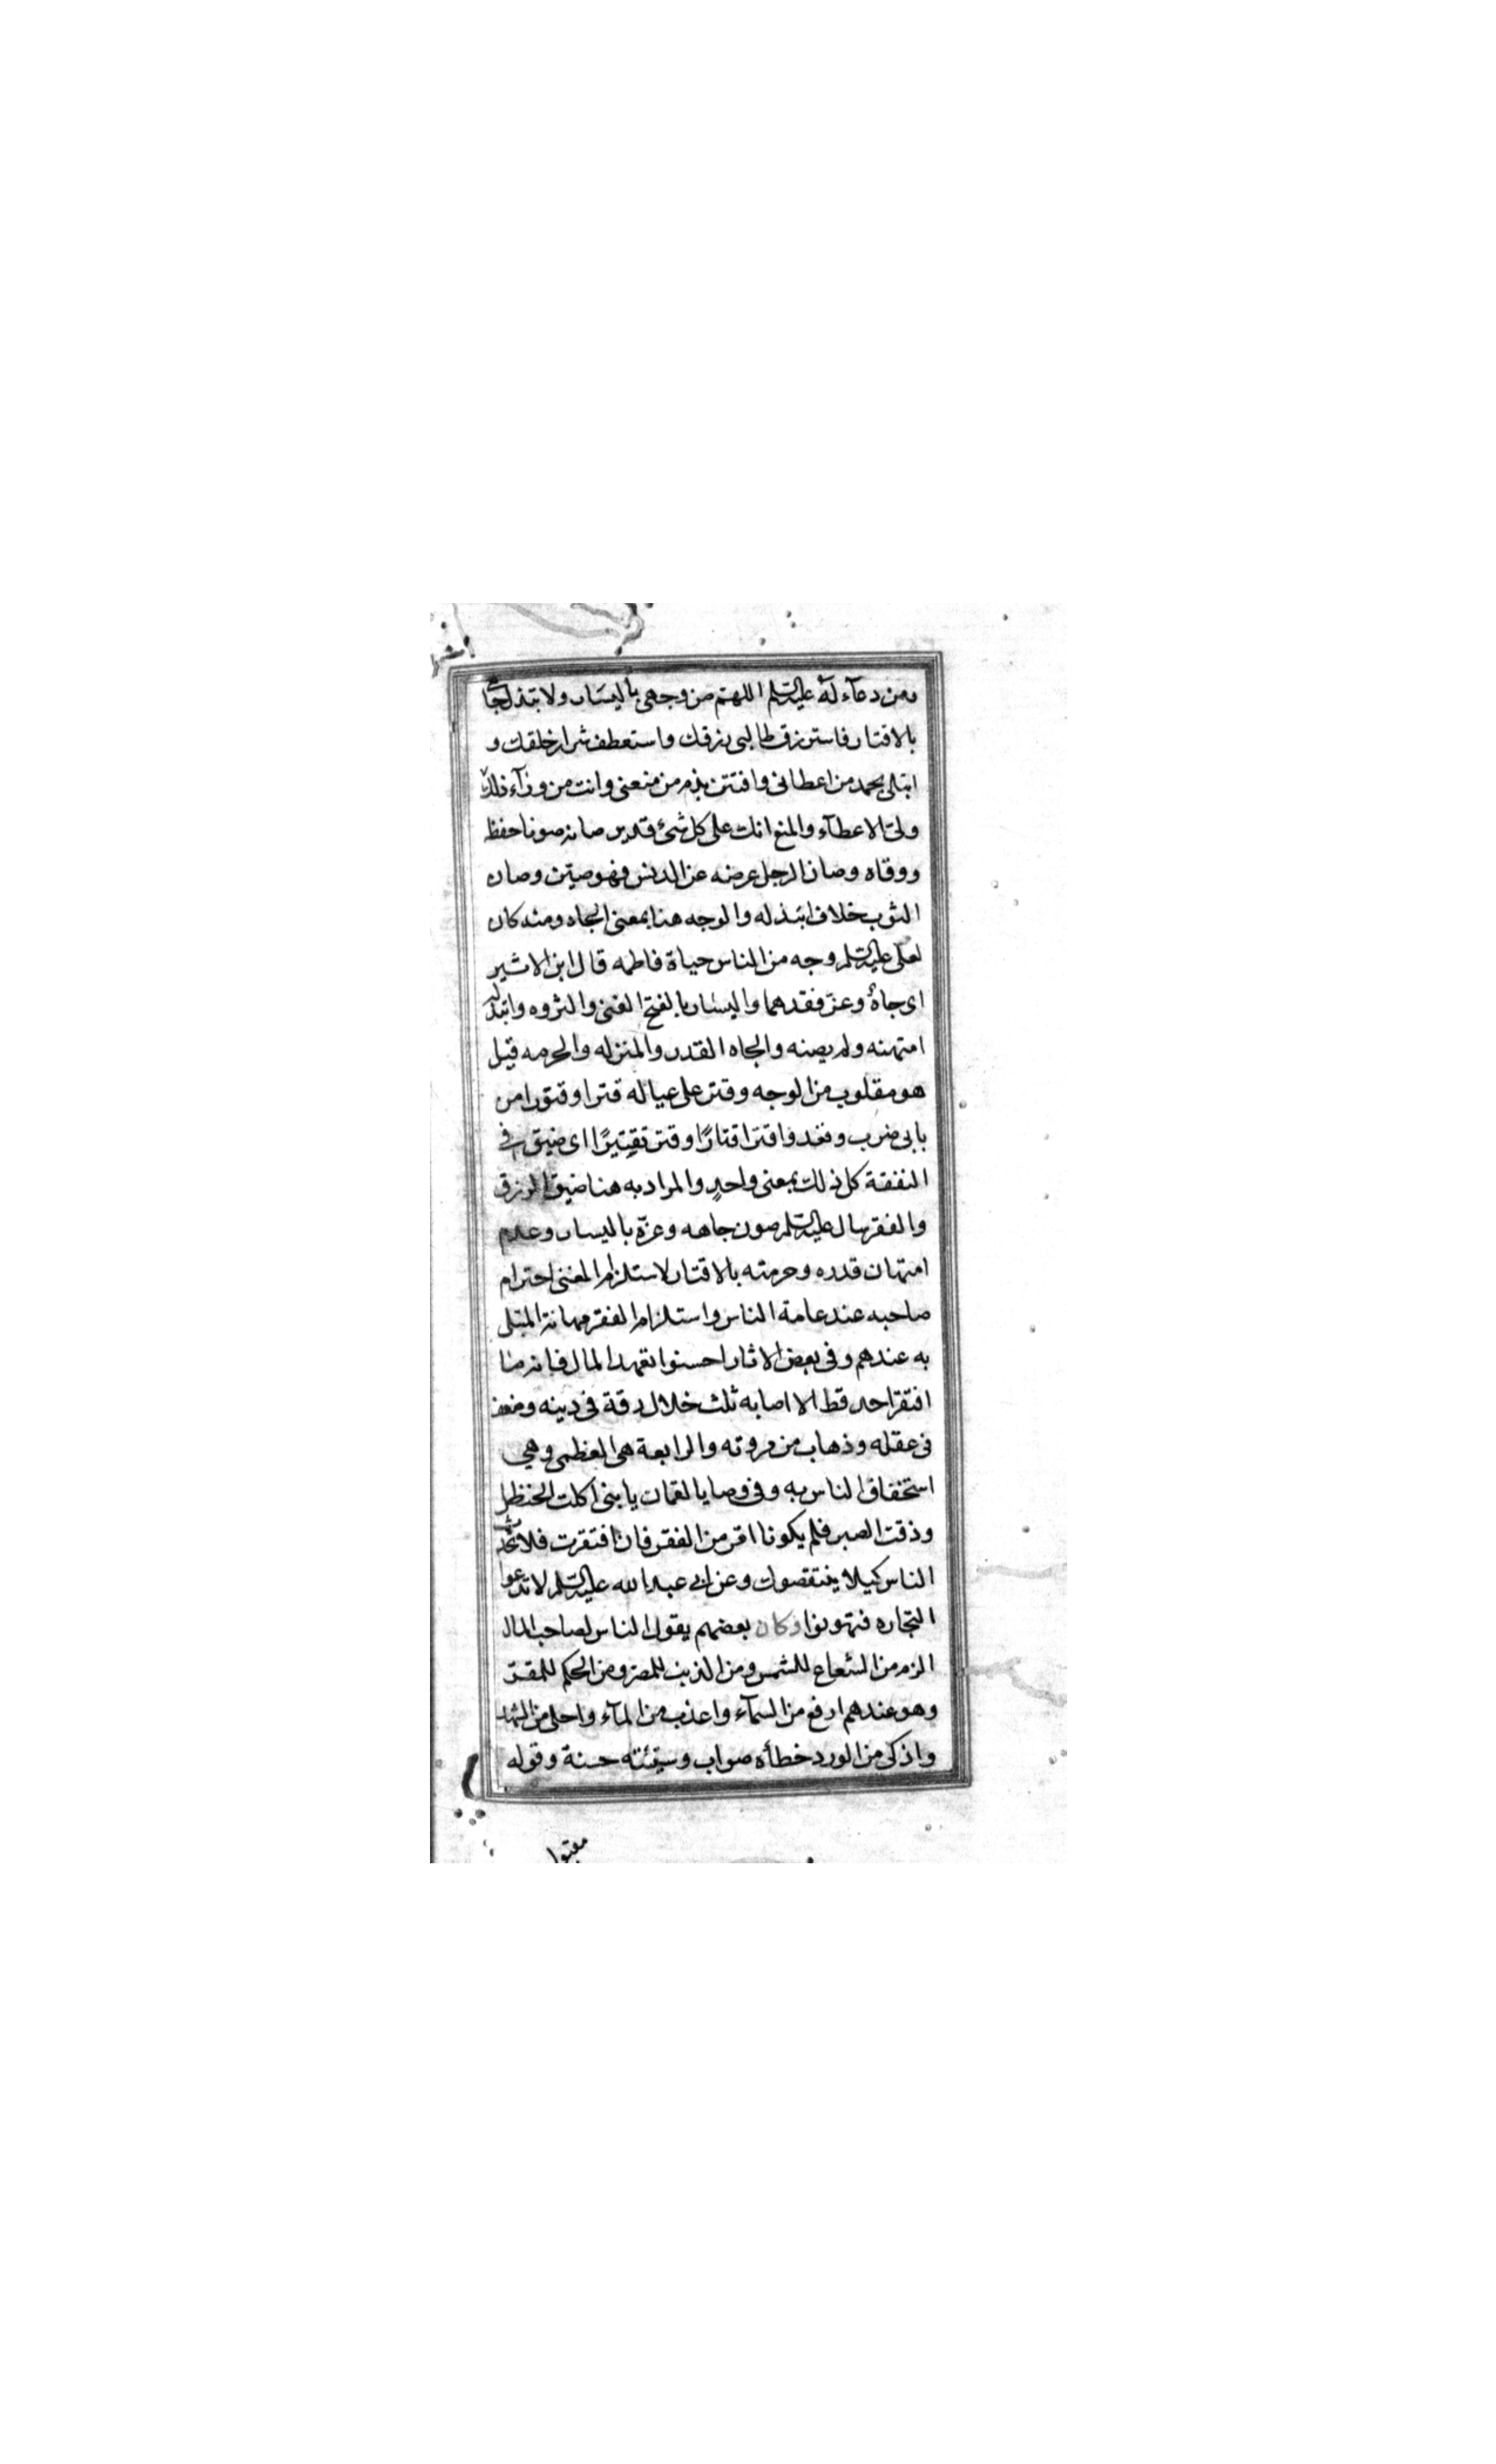 ومن دعاء له عليه السلم اللهم صن وجهي باليسار ولا تبتذل جاهي
بالاقتار فاسترزق طالبي رزقك واستعطف شرار خلقك و
ابتلى بحمد من اعطاني وافتتن بذم من منعني وانت من وراء ذلك
ولي الاعطاء والمنع انك على كل شئ قدير صانه صونا حفظه
ووقاه وصان الرجل عرضه عن الدنس فهو صين وصان
الثوب خلاف ابتذله والوجه هنا بمعنى الجاه ومنه كان
لعلى عليه السلم وجه من الناس حياة فاطمه قال ابن الاثير
اى جاه وعز فقدهما واليسار بالفتح الغنى والثروه وابتذله
امتهنه ولم يصنه والجاه القدر والمنزله والحرمه قيل
هو مقلوب من الوجه وقتر على عياله قترا وقتورا من
بابى ضرب وقعد واقتر اقتارًا وقتر تقتيرًا اى ضيق في
النفقة كل ذلك بمعنى واحدٍ والمراد به هنا ضيق الرزق
والفقر سال عليه السلم صون جاهه وعزّه باليسار وعدم
امتهان قدره وحرمته بالاقتار لاستلزام الغنى احترام
صاحبه عند عامة الناس واستلزام الفقر مهانة المبتلى
به عندهم وفى بعض الاثار احسنوا تعهد المال فانه ما
افتقر احد قط الا اصابه ثلث خلال رقة في دينه وضعف
في عقله وذهاب من مروته والرابعة هى العظمى وهي
استخفاف الناس به وفي وصايا لقمان يا بنى اكلت الحنظل
وذقت الصبر فلم يكونا امر من الفقر فان افتقرت فلا تحدث
الناس كيلا ينتقصوك وعن ابي عبد الله عليه السلم لا تدعوا
التجاره فتهونوا وكان بعضهم يقول الناس لصاحب المال
الزم من الشعاع للشمس ومن الذنب للمصر ومن الحكم للمقر
وهو عندهم ارفع من السمآء واعذب من المآء واحلى من الشهد
واذكى من الورد خطأه صواب وسيئته حسنة وقوله
مقبول